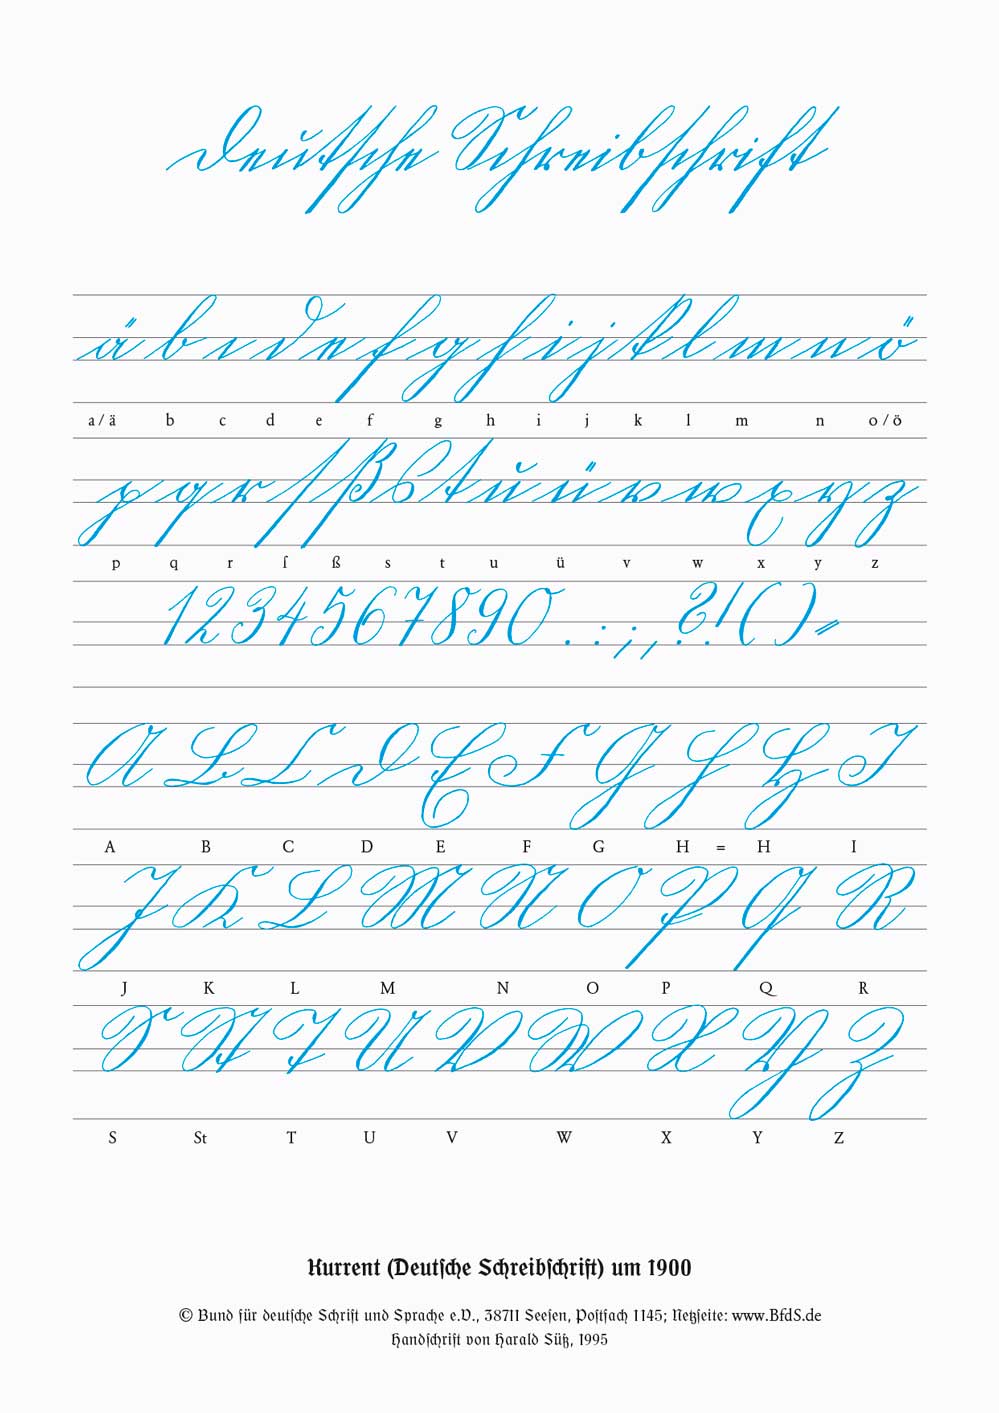 Deutſche Schreibſchrift
ä b c d e f g h i j k l m n ö
a/ä b c d e f g h i j k l m n o/ö
p q r ſ ß s t u ü v w x y z
p q r ſ ß s t u ü v w x y z
1 2 3 4 5 6 7 8 9 0 . : ; , ? ! ( ) =
A B C D E F G H H I
A B C D E F G H = H I
J K L M N O P Q R
J K L M N O P Q R
S St T U V W X Y Z
S St T U V W X Y Z
Kurrent (Deutſche Schreibſchrift) um 1900
© Bund für deutſche Schrift und Sprache e.V., 38711 Seeſen, Poſtfach 1145; Netzſeite: www.BfdS.de
Handſchrift von Harald Süß, 1995